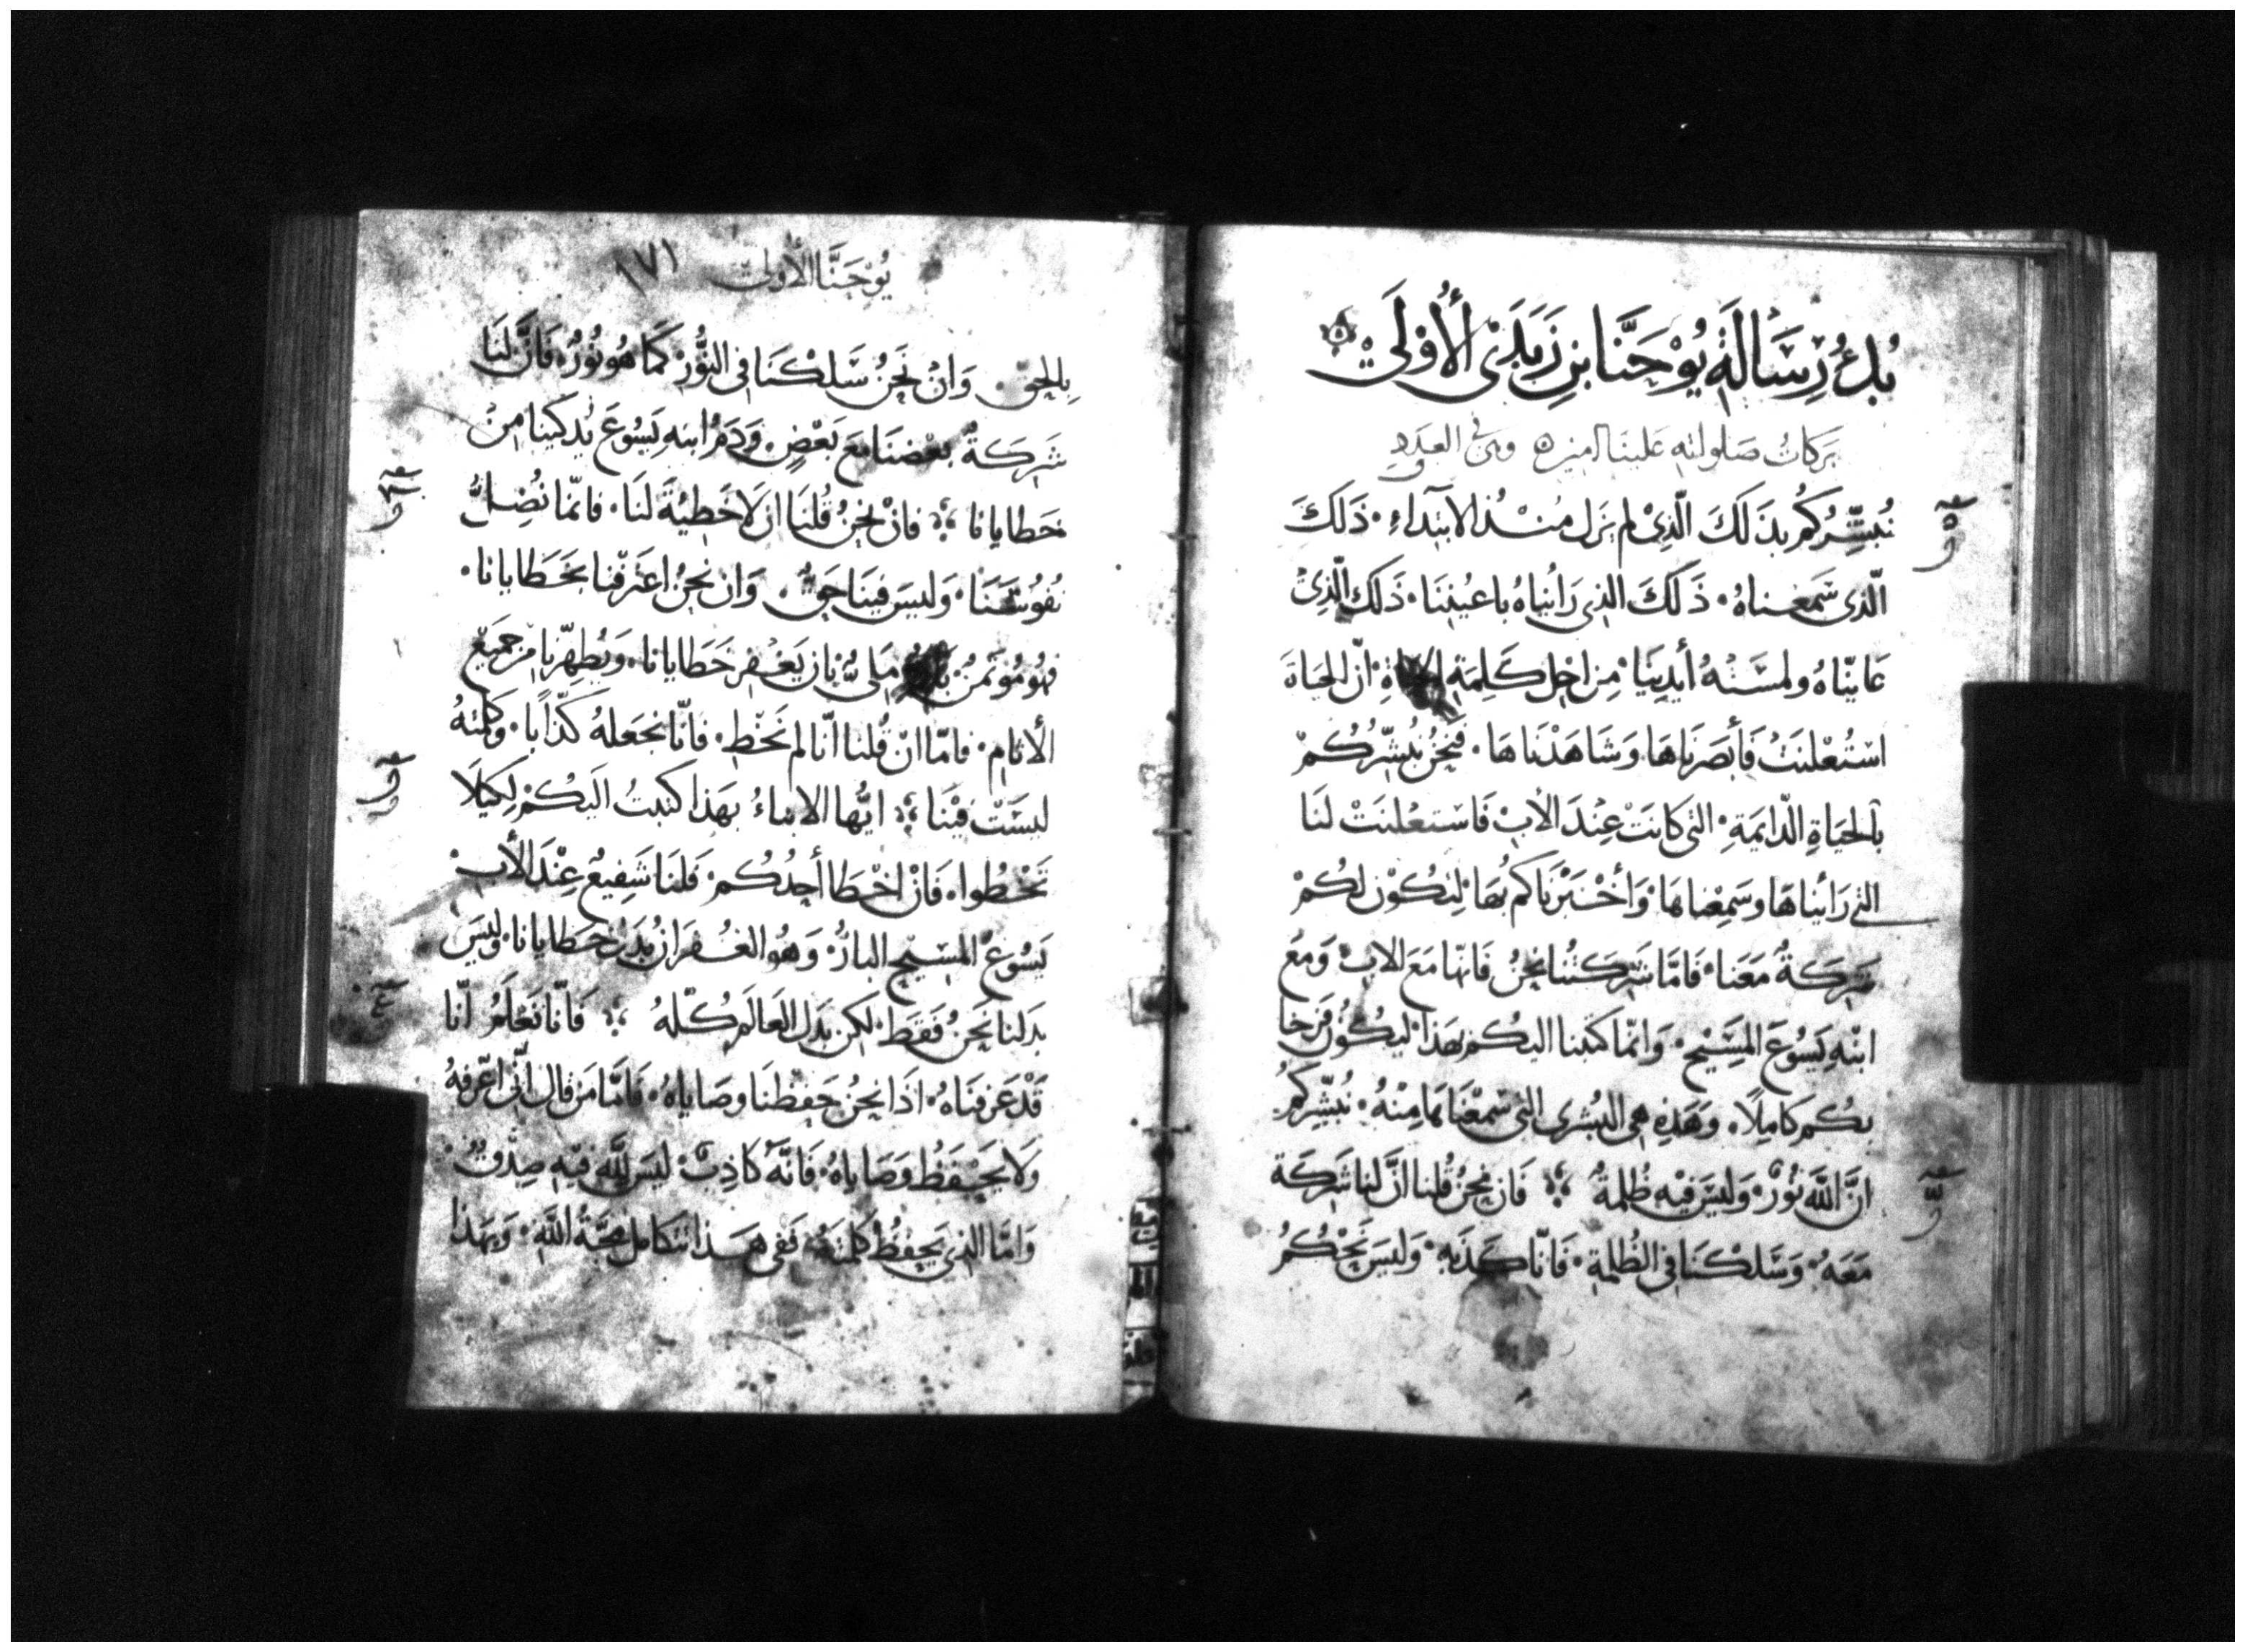 بُدءُ رِسَالَةِ يُوْحَنَّا بنِ زَبَدَىْ الأُوْلَىْ
بَرَكَاتُ صَلَواته عَلينَا امين وهي في العدد
نُبَشِّرُكُم بذَلَكَ الّذِيْ لم يَزَل مُنْذُ الابتدَاءِ ۰ ذَلكَ
الّذى سَمعناهُ ۰ ذَلَكَ الذى رَاينَاهُ باعيُننَا ۰ ذَلكَ الّذِيْ
عَاينّاهُ ولمسَتْهُ أيدينَا ۰ مِن اجْل كَلِمَةِ الحياةِ ۰ انّ الحيَاةَ
اسْتُعْلنَتْ فَأبصَرنَاهَا وَشَاهَدْنَاهَا ۰ فنَحنُ نُبشّرُكُمْ
بالحيَاةِ الدّايمَةِ ۰ التى كانَتْ عِنْدَ الأبْ فَاسْتعْلنَتْ لنَا
التى رَايْنَاهَا وسَمِعْنَاهَا ۰ وَأخْبَرنَاكم بهَا ۰ لِتكُوْن لكُمْ
شَركَةٌ مَعَنا ۰ فَامَّا شَركَتُنَا نحنُ فَانّها مَعَ الابْ ۰ وَمَعَ
ابنْهِ يَسُوعَ المسَيْحِ ۰ وَانّما كَتَبنا اليكُم بهَذا ۰ ليكُون فرَحنا
بكُم كَامِلًا ۰ وَهَذِهِ هى البُشرى التى سَمعْنَاهَا مِنْهُ ۰ نُبشّركُم
انَّ اللَّه نُورٌ ۰ وَليسَ فيْهِ ظُلمةٌ فَان نحنُ قُلنا انَّ لنا شَركَة
مَعَهُ ۰ وَسَلكْنَا فى الظُلمةِ ۰ فَانّا كَذَبَه ۰ وَليسَ نَحْكُمُ
يُوْحَنَّا الأولى ١٧١
بالحَقِ ۰ وَانْ نَحنُ سَلكْنَا فى النُّوْر ۰ كَمَا هُو نُورٌ ۰ فَانَّ لنَا
شَركَةٌ بعْضنَا مَعَ بَعْضٍ ۰ وَدَمُ ابنه يَسُوعَ يُذكينا مِنْ
خطايانا فانْ نحنُ قُلنَا ان لَا خَطيْةَ لنَا ۰ فانمّا نُضِلُّ
نُفوُسَنَا ۰ وَليسَ فينَا حَقٌ ۰ وَان نحنُ اعتَرفْنا بخَطَايانا ۰
فهُو مُؤتَمنٌ مَلىٌّ بان يَغْفِر خَطايانا ۰ وَيُطهّرنا مِن جميْعِ
الأثام ۰ فامّا انْ قُلنا انّا لم نَخْطِ ۰ فانّا نجعَلهُ كَذّابا ۰ وَكلمتهُ
ليسَتْ فيْنَا ايُّها الابناءُ بهَذا كتبتُ اليَكُمْ لِكيْلَا
تَخْطُوا ۰ فَانْ اخْطَا أحدُكُم ۰ فَلنَا شَفِيعٌ عِنْدَ الأبْ
يَسُوعُ المسَيْحِ البارُّ ۰ وَهُو الغُفرَان بَدَل خَطايانا ۰ وليسَ
بدَلنا نَحنُ فَقَط ۰ لكن بدَل العَالَم كُلّهُ فَانّا نَعْلَمُ انّا
قَدْ عَرفنَاهُ ۰ اذَا نحنُ حَفظْنَا وصَاياهُ ۰ فَامّا مَن قَال انّى اعْرفهُ
وَلا يَحْفَظُ وَصَاياهُ ۰ فَانَّهُ كاذِبٌ ۰ ليسَ للَّه فيْهِ صِدْقٌ ۰
وَامّا الذى يَحفظُ كلمتَهُ ۰ فَفى هَذا تتكامل محبّةُ اللَّهِ ۰ وَبهَذا